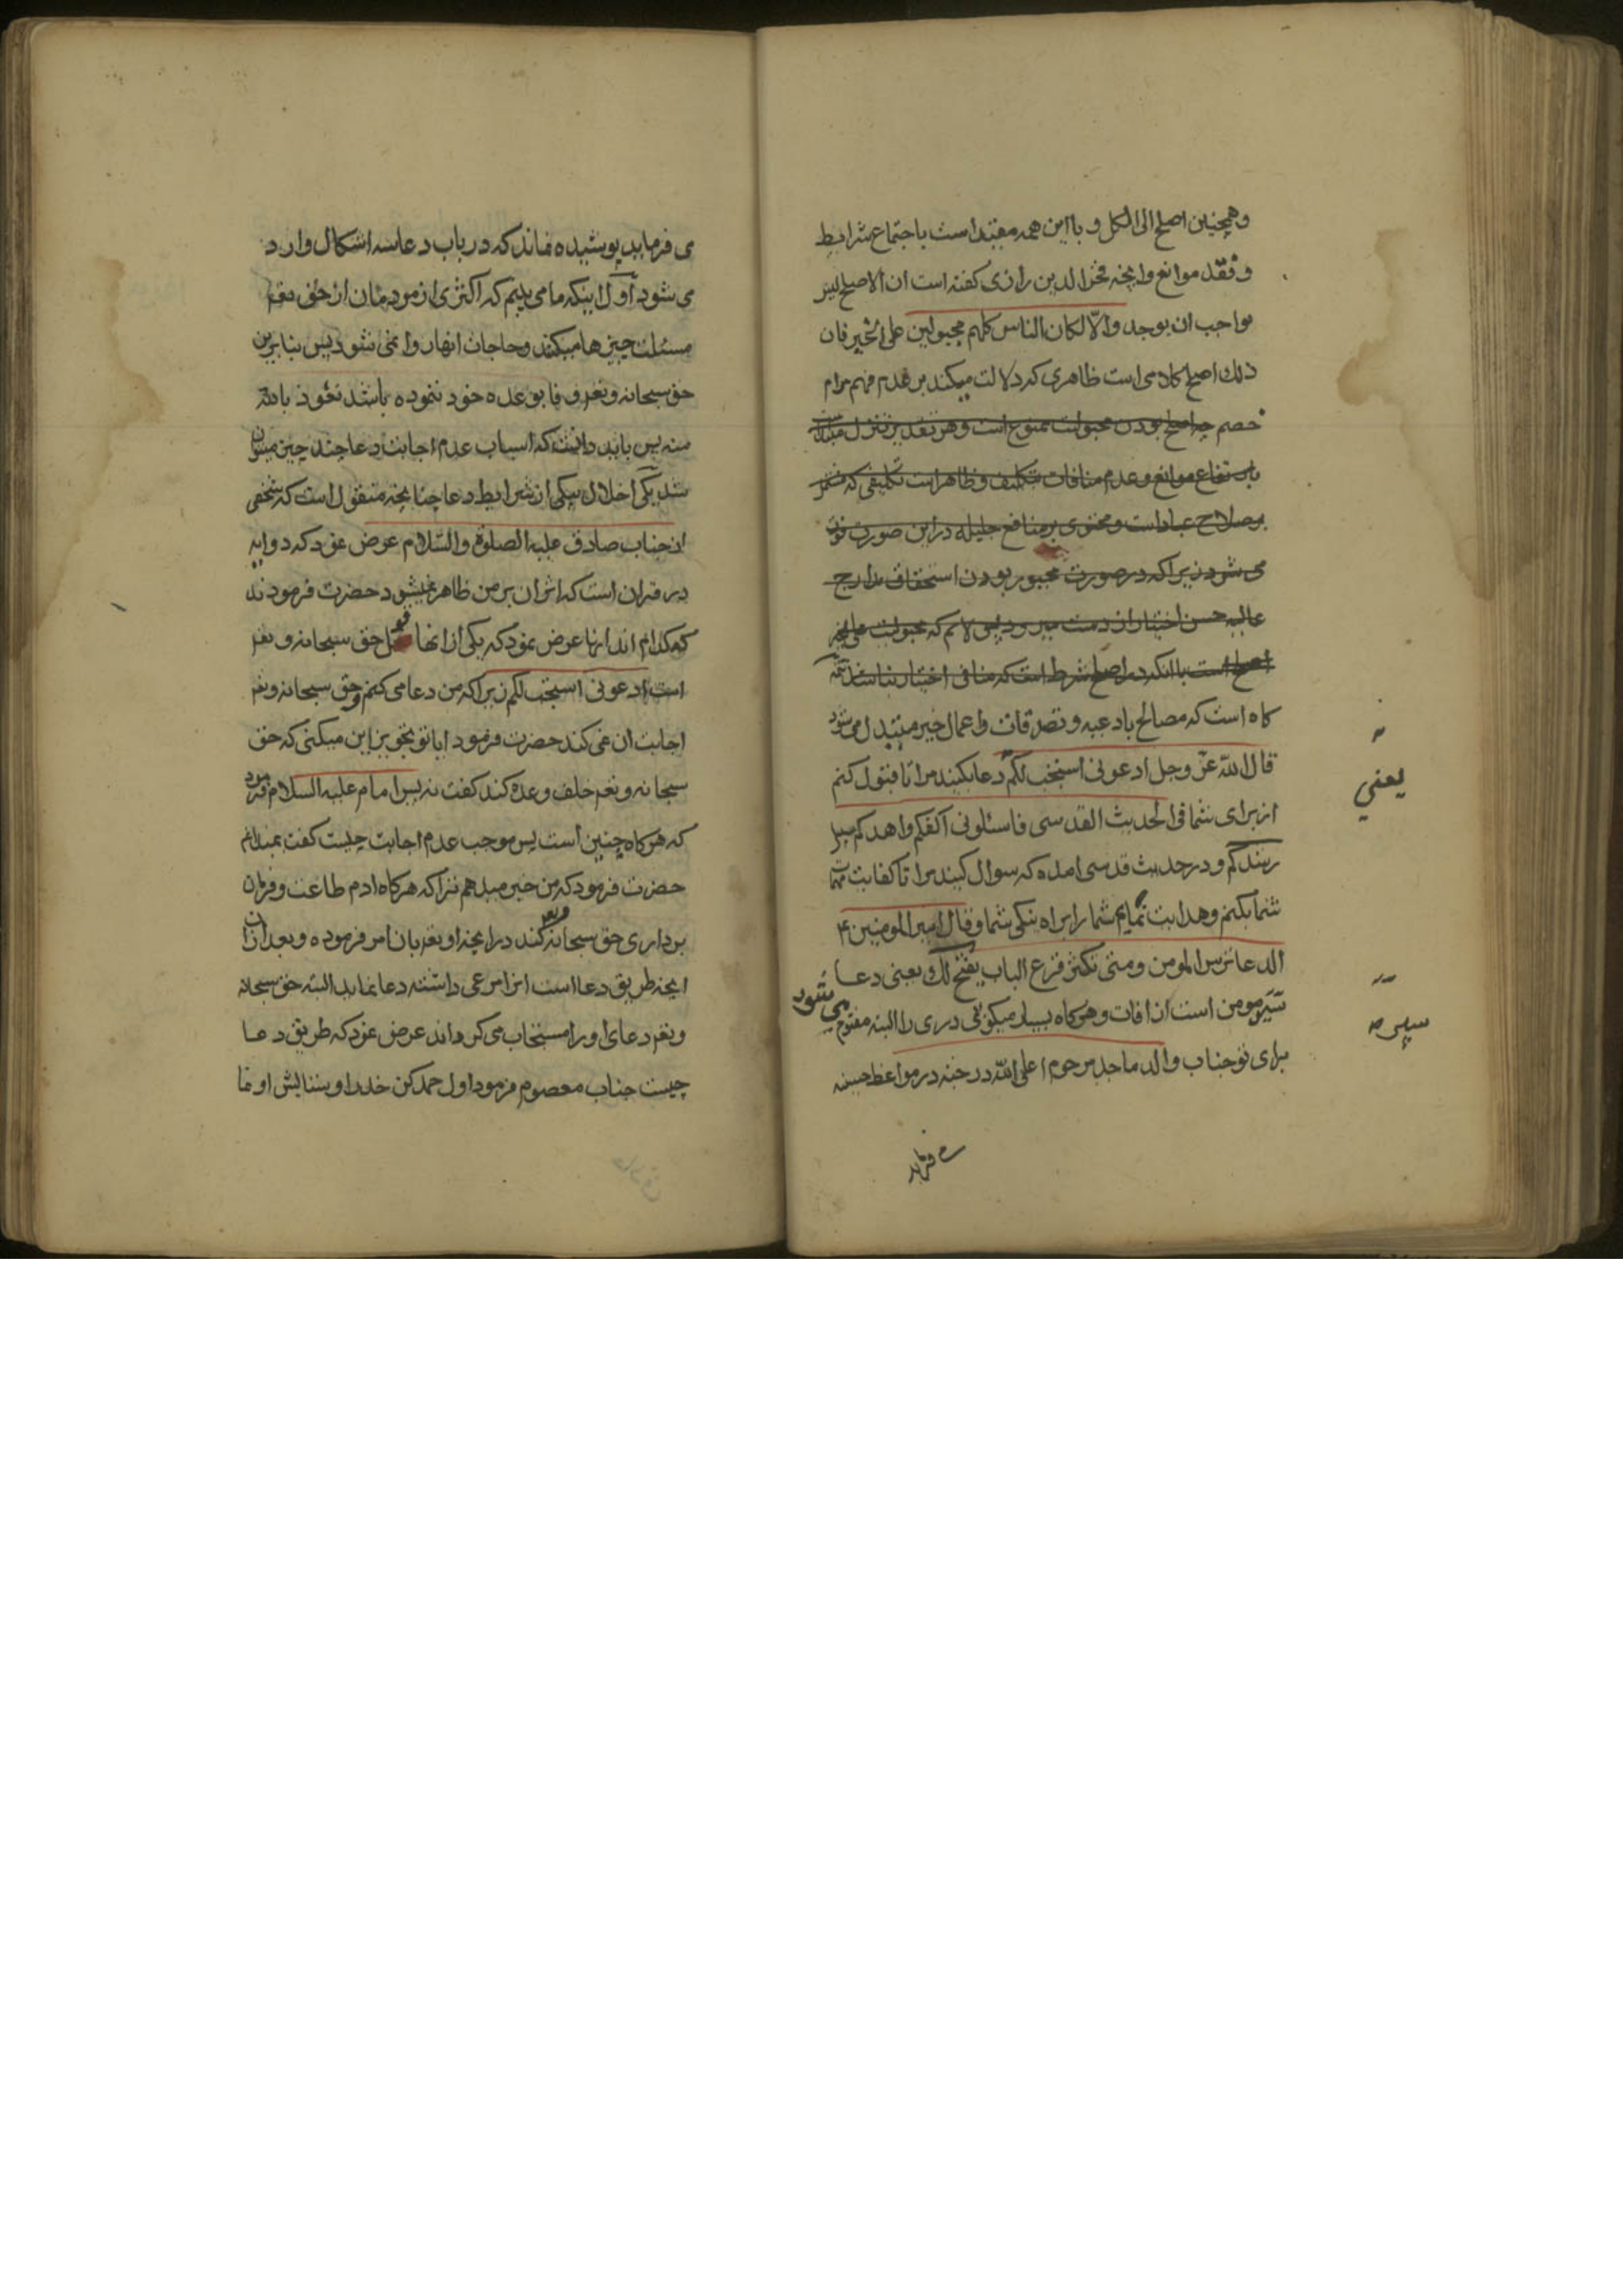 وهمچنین اصلح الی الکل و با این همه مقیّد است باجتماع شرایط
و فقد موانع وانچه فخر الدین رازی کفته است ان الاصلح لیس
بواجب ان یوجد والّا لکان الناس کلهم مجبولین علی الخیر فان
ذلک اصلح کلامی است ظاهری که دلالت میکند بر عدم فهم مرام
خصم چه اصلح بودن مجبولیت ممنوع است و هر تقدیر تنزل
بارتفاع موانع و عدم منافات تکلیف و ظاهر است تکلیفی که مثمر
بر صلاح عباد است و محتوی بر منافع جلیله در این صورت فوت
می شود زیرا که در صورت مجبور بودن استحقاق مدارج
عالیه حسن اختیار از دست میرود پس لا نم که مجبولیت علی الخیر
اصلح است با انکه در اصلح شرط است که منافی اختیار نباشد
کاه است که مصالح بادعیه و تصدقات واعمال خیر متبدل می شود
قال الله عزّ وجل ادعونی استجب لکم دعا بکنید مرا تا قبول کنم
از برای شما فی الحدیث القدسی فاسئلونی اکفکم واهدکم سبیل
رشدکم و در حدیث قدسی امده که سوال کنید مرا تا کفایت مهمات
شما بکنم و هدایت نمایم شما را براه نیکی شما و قال امیر المومنین ۴
الدعا ترس المومن و متی تکثر قرع الباب یفتح لک و یعنی دعا
سپر مومن است از افات و هر کاه بسیار میکوبی دری را البته مفتوح می شود
برای تو جناب والد ماجد مرحوم اعلی الله درجته در مواعظ حسینه
یعنی
سپر صه
می فرماید
می فرماید پوشیده نماند که در باب دعا سه اشکال وارد
می شود اول اینکه ما می بینیم که اکثری از مردمان از حق تعم
مسئلت چیز ها میکنند و حاجات انها روا نمی شود پس بنا برین
حق سبحانه و تعم وفا بوعده خود ننموده باشد نعوذ بالله
منه پس باید دانست که اسباب عدم اجابت دعا چند چیز میتوان
شد یکی اخلال بیکی از شرایط دعا چنانچه منقول است که شخصی
از جناب صادق علیه الصلوة والسّلام عرض نمود که دو ایه
در قران است که اثر ان بر من ظاهر نمیشود حضرت فرمودند
که کدام اند انها عرض نمود که یکی از انها قول حق سبحانه و تعم
است ادعونی استجب لکم زیرا که من دعا می کنم و حق سبحانه و تعم
اجابت ان نمی کند حضرت فرمود ایا تو تجویز این میکنی که حق
سبحانه و تعم خلف وعده کند کفت نه پس امام علیه السلام فرمود
که هر کاه چنین است پس موجب عدم اجابت چیست کفت نمیدانم
حضرت فرمود که من خبر میدهم ترا که هر کاه ادم طاعت و فرمان
برداری حق سبحانه و تعم کند در انچه او تعم بان امر فرموده و بعد از ان
انچه طریق دعا است انرا مرعی داشته دعا نماید البته حق سبحانه
و تعم دعای او را مستجاب می کرداند عرض نمود که طریق دعا
چیست جناب معصوم فرمود اول حمد کن خدا را و ستایش او نما